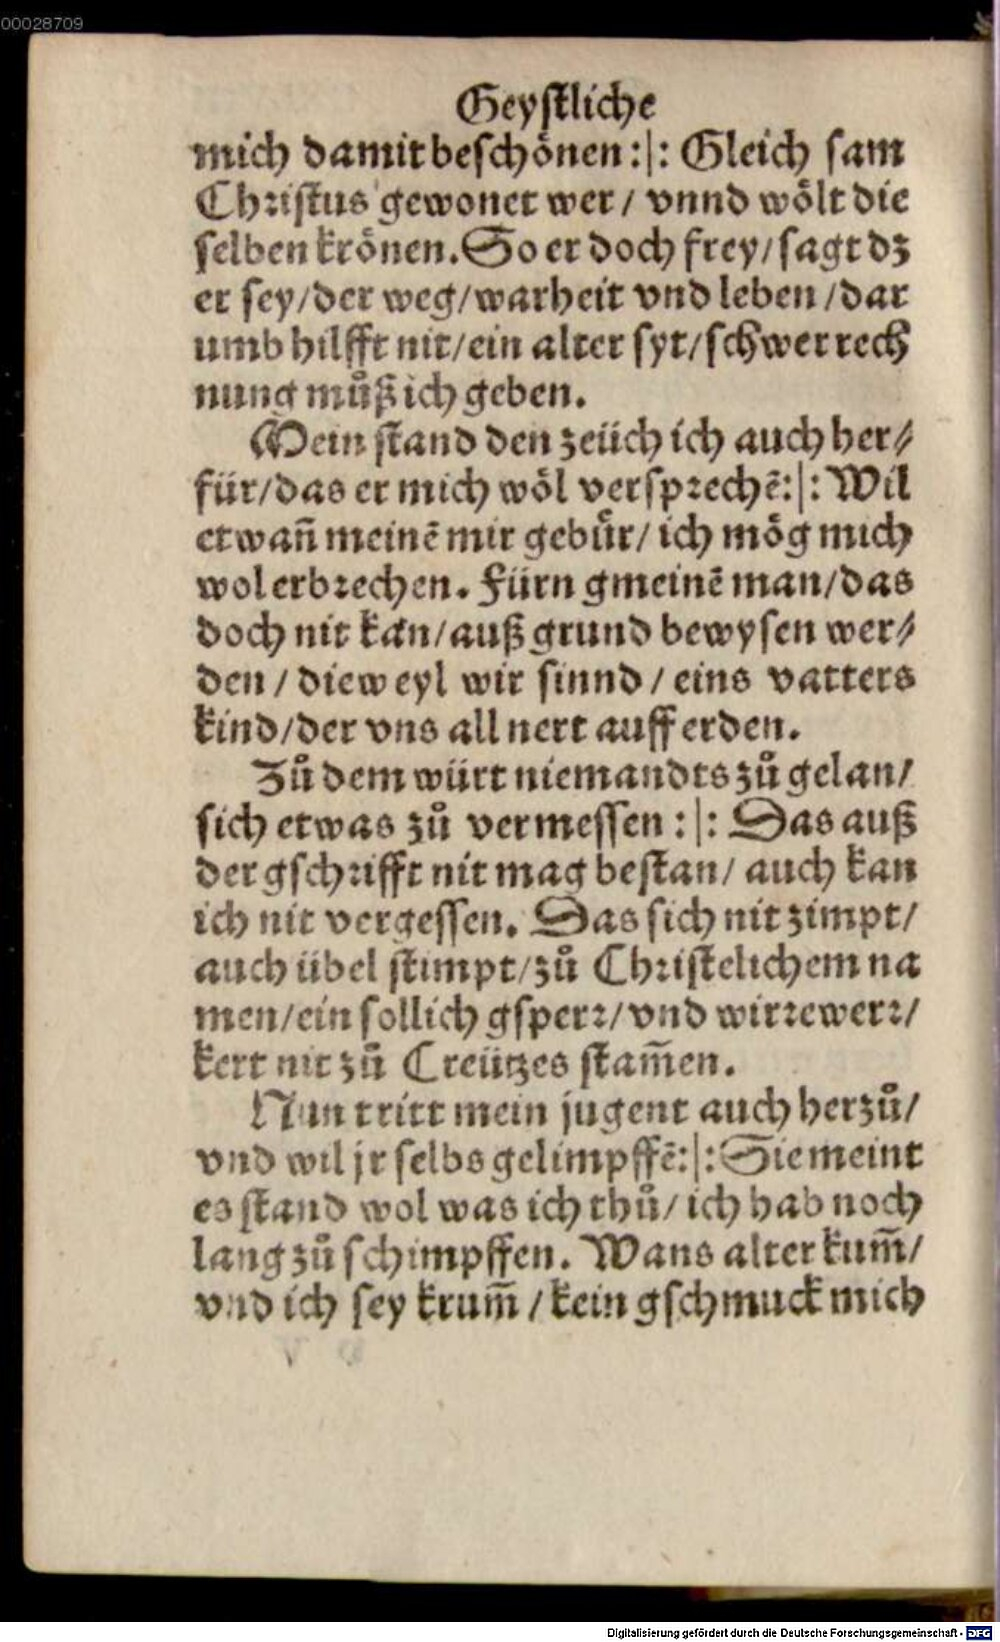 00028709
Geystliche
mich damit beschönen :|: Gleich sam
Christus gewonet wer / vnnd wölt die
selben krönen. So er doch frey / sagt dz
er sey / der weg / warheit vnd leben / dar
umb hilfft nit / ein alter syt / schwer rech
nung můß ich geben.
Mein stand den zeüch ich auch her⸗
für / das er mich wöl versprechē :|: Wil
etwañ meinē mir gebür / ich mög mich
wol erbrechen. Fürn gmeinē man / das
doch nit kan / auß grund bewysen wer⸗
den / dieweyl wir sinnd / eins vatters
kind / der vns all nert auff erden.
Zů dem würt niemandts zů gelan /
sich etwas zů vermessen :|: Das auß
der gschrifft nit mag bestan / auch kan
ich nit vergessen. Das sich nit zimpt /
auch übel stimpt / zů Christelichem na
men / ein sollich gsperr / vnd wirrewerr /
kert nit zů Creützes stam̄en.
Nun tritt mein jugent auch herzů /
vnd wil jr selbs gelimpffē :|: Sie meint
es stand wol was ich thů / ich hab noch
lang zů schimpffen. Wans alter kum̄ /
vnd ich sey krum̄ / kein gschmuck mich
Digitalisierung gefördert durch die Deutsche Forschungsgemeinschaft - DFG